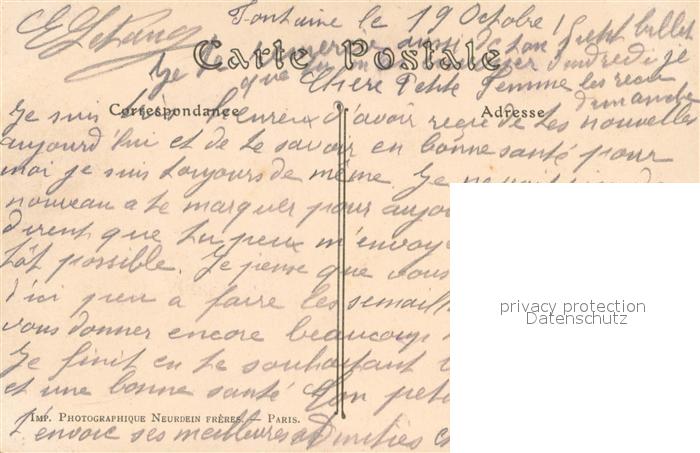 Fontaine le 19 Octobre
ton petit billet
Carte Postale
Je
vendredi je
que
Chère Petite Femme les
dimanche
Correspondance
Adresse
Je suis bien heureux d'avoir reçu de tes nouvelles
aujourd'hui et de te savoir en bonne santé pour
moi je suis toujours de même. Je
nouveau a te marquer pour aujo
dirent que tu peux m'envoye
tôt possible. Je pense que vous
d'ici peu a faire les semaill
vous donner encore beaucoup
Je finit en te souhaitant
et une bonne santé Ton peti
IMP. PHOTOGRAPHIQUE NEURDEIN FRÈRES. – PARIS.
t'envoie ses meilleures amitiés
privacy protection
Datenschutz